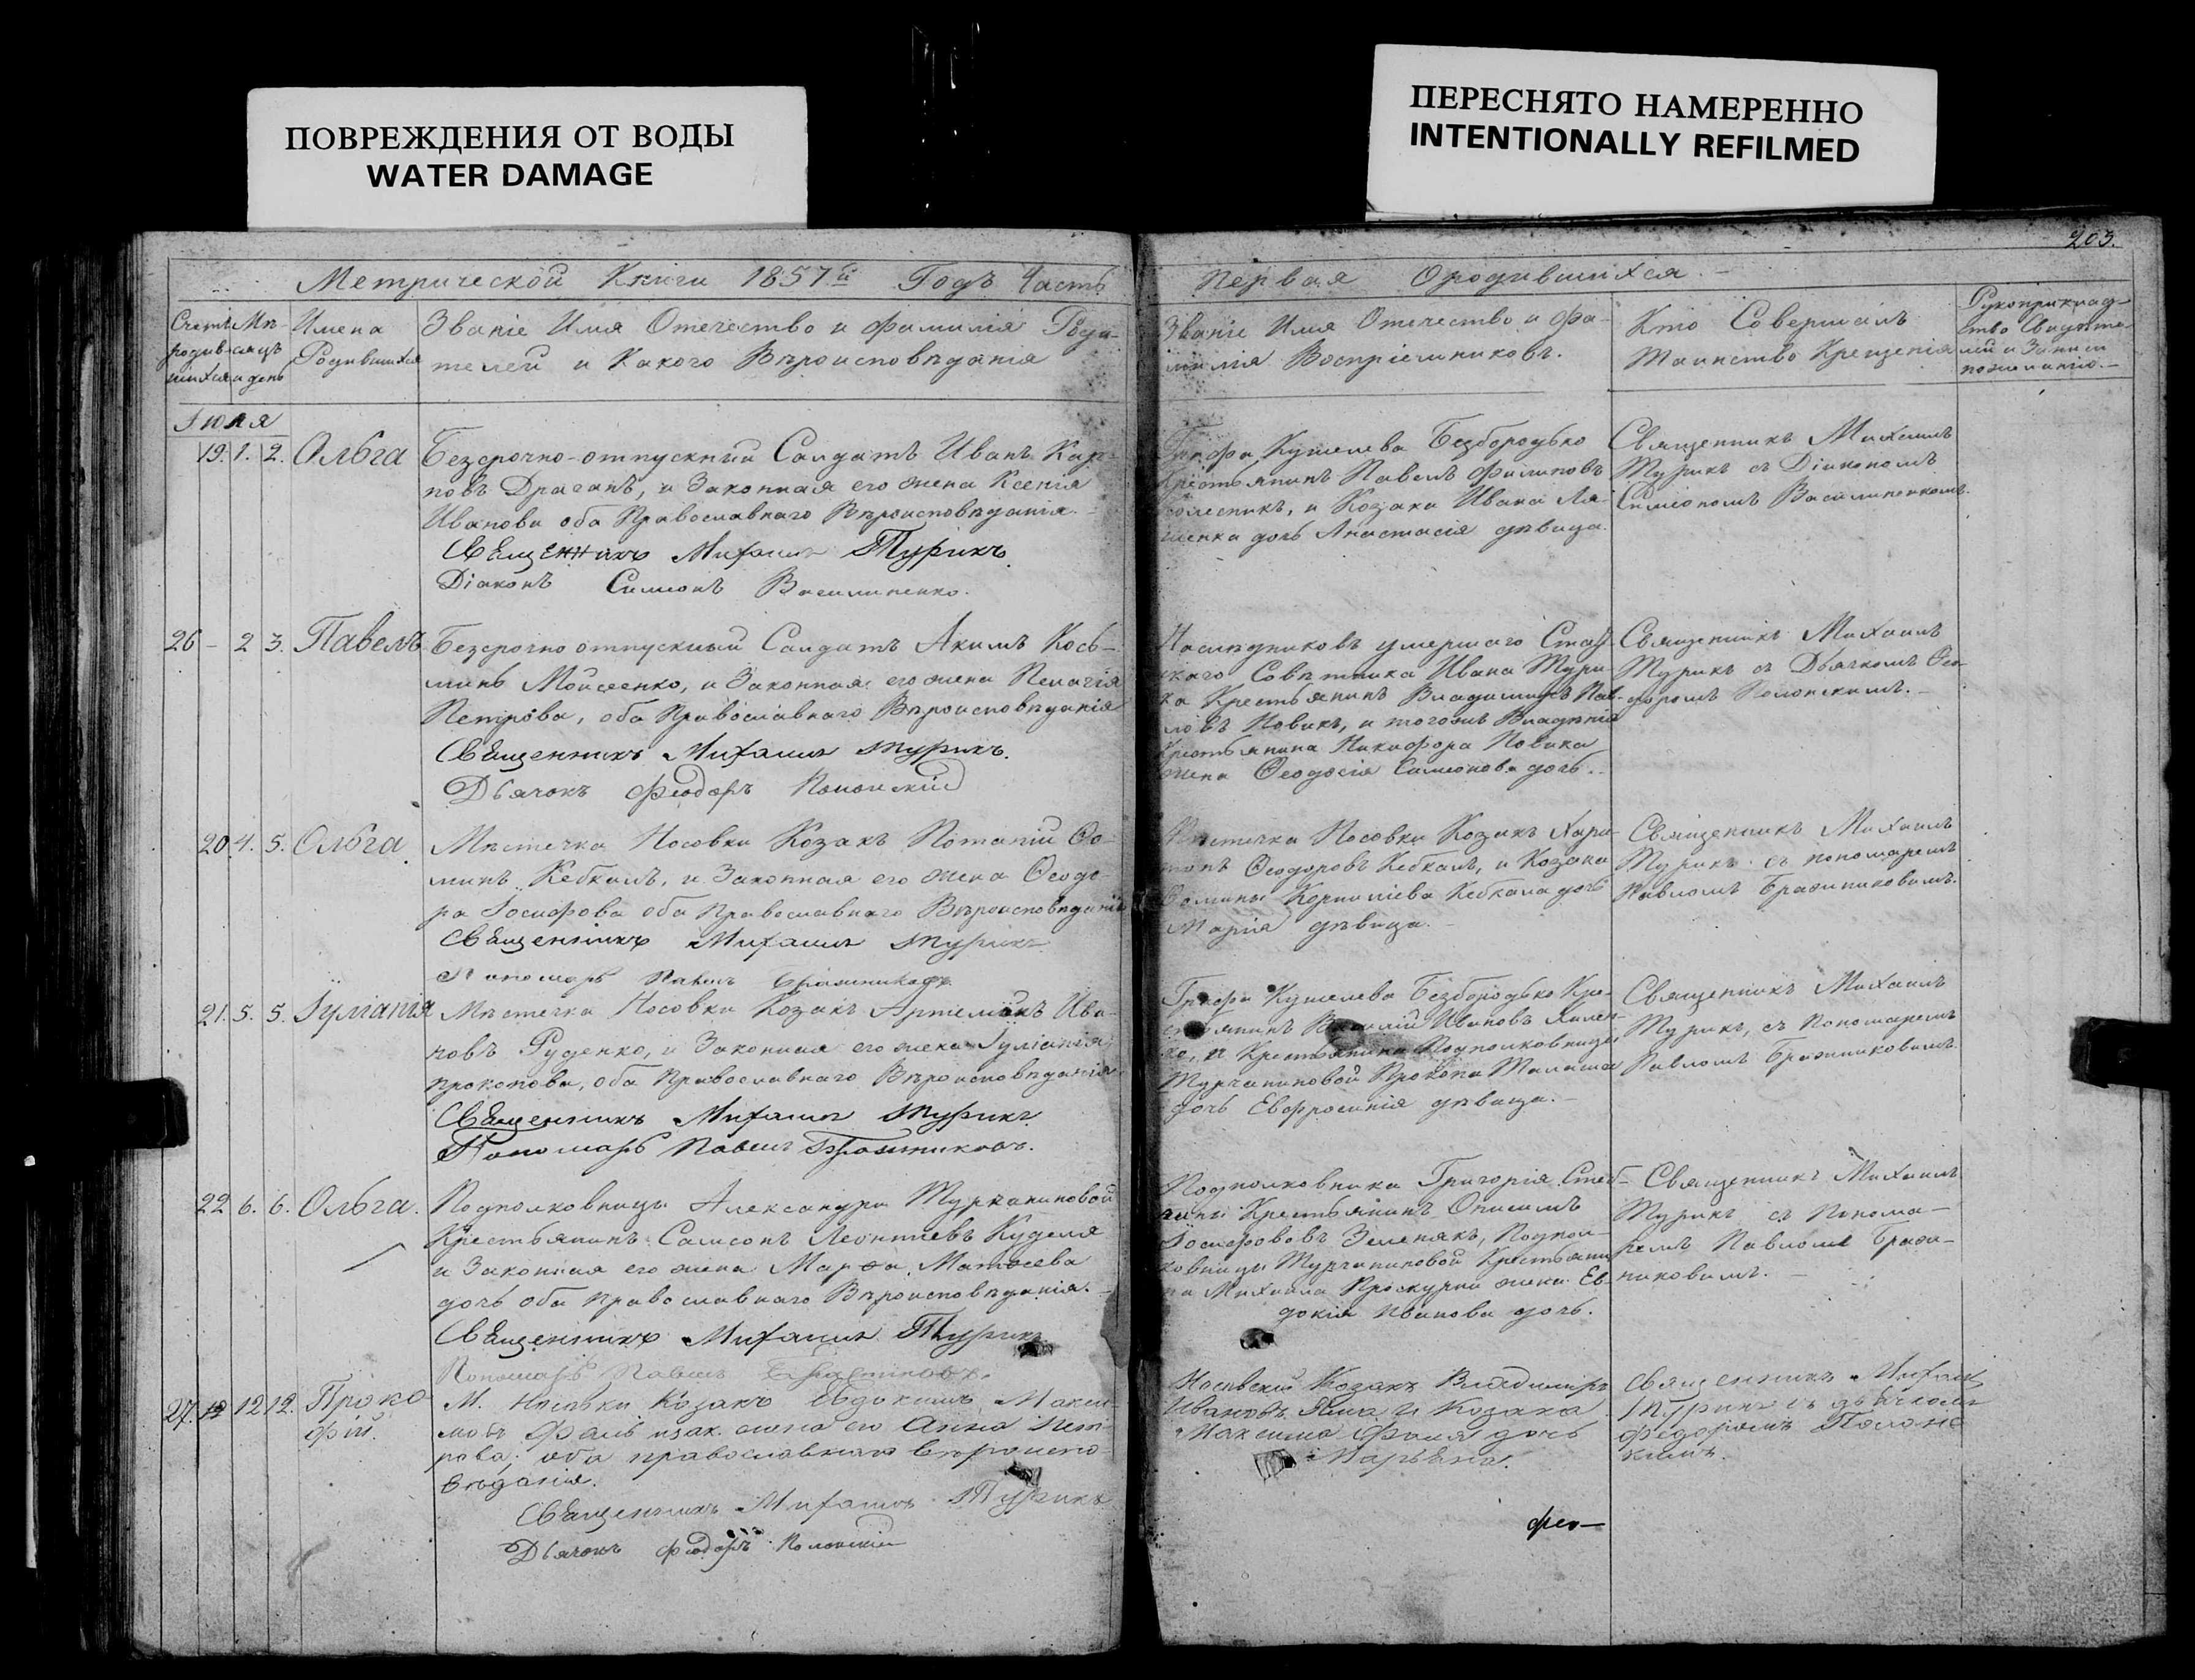 ПОВРЕЖДЕНИЯ ОТ ВОДЫ
WATER DAMAGE
ПЕРЕСНЯТО НАМЕРЕННО
INTENTIONALLY REFILMED
203.
Метрической Книги 1857й Годъ Часть
Первая Ородившихся.
Счетъ родив-шихся
Мѣ-сяцъ и день
Имена
Родившихся
Званіе Имя Отечество и Фамилія Роди-
телей и Какого Вѣроисповѣданія
Званіе Имя Отечество и Фа-
милія Воспріемниковъ.
Кто Совершалъ
Таинство Крещенія
Рукоприклад-
ство Свидѣте-
лей и Записи
по желанію.
Іюля
19. 1. 2. Ольга
Безсрочно-отпускный Солдатъ Иванъ Кар-
повъ Драганъ, и Законная его жена Ксенія
Иванова оба Православнаго Вѣроисповѣданія.
Священникъ Михаилъ Турикъ.
Діаконъ Симеонъ Василипенко.
Графа Кушелева Безбородько
Крестьянинъ Павелъ Филиповъ
Колесникъ, и Козака Ивана Ля-
шенка дочь Анастасія дѣвица.
Священникъ Михаилъ
Турикъ съ Діакономъ
Симеономъ Василипенкомъ.
26 - 2 3. Павелъ
Безсрочно отпускный Солдатъ Акимъ Кось-
минъ Мойсеенко, и Законная его жена Пелагія
Петрова, оба Православнаго Вѣроисповѣданія
Священникъ Михаилъ Турикъ.
Дьячокъ Феодоръ Полонскій
Наслѣдниковъ умершаго Стат-
скаго Совѣтника Ивана Тури-
ка Крестьянинъ Владимиръ Пав-
ловъ Новикъ, и тогожъ Владѣнія
Крестьянина Никифора Новика
жена Ѳеодосія Симеонова дочь.
Священникъ Михаилъ
Турикъ съ Дьячкомъ Ѳео-
доромъ Полонскимъ.
20. 4. 5. Ольга.
Мѣстечка Носовки Козакъ Потапій Ѳо-
минъ Кебкалъ, и Законная его жена Ѳеодо-
ра Іосифова оба Православнаго Вѣроисповѣданія
Священникъ Михаилъ Турикъ
Пономарь Павелъ Бражниковъ
Мѣстечка Носовки Козакъ Хари-
тонъ Ѳеодоровъ Кебкалъ, и Козака
Корнилієва Кебкала дочь
Марія дѣвица.
Священникъ Михаилъ
Турикъ съ пономаремъ
Павломъ Бражниковымъ.
21. 5. 5. Іуліанія
Мѣстечка Носовки Козакъ Артемонъ Ива-
новъ Руденко, и Законная его жена Іуліанія
Прокопова, оба Православнаго Вѣроисповѣданія
Священникъ Михаилъ Турикъ
Пономарь Павелъ Бражниковъ.
Графа Кушелева Безбородько Кре-
стьянинъ Василій Ивановъ
и Крестьянина Подполковницы
Турчаниновой Прокопа
дочь Евфросинія дѣвица.
Священникъ Михаилъ
Турикъ, съ Пономаремъ
Павломъ Бражниковымъ.
22 6. 6. Ольга.
Подполковницы Александры Турчаниновой
Крестьянинъ Самсонъ Леонтіевъ Куделя
и Законная его жена Марѳа Матѳеева
дочь оба Православнаго Вѣроисповѣданія.
Священникъ Михаилъ Турикъ
Пономарь Павелъ Бражниковъ.
Подполковника Григорія
Крестьянинъ Онисимъ
Іосифововъ Зеленякъ, Подпол-
ковницы Турчаниновой Крестьяни-
на Михаила Проскурни жена Ев-
докія Иванова дочь.
Священникъ Михаилъ
Турикъ съ Понома-
ремъ Павломъ Браж-
никовымъ.
27. 12 12. Проко-
фій.
М. Носовки Козакъ Евдокимъ Макси-
мовъ Фаль и зак. жена его Анна Пет-
рова; оба православнаго вѣроиспо-
вѣданія.
Священникъ Михаилъ Турикъ
Дьячокъ Феодоръ Полонскій
Носовскій Козакъ Владимиръ
Ивановъ и Козака
Максима Фаля дочь
Марьяна.
Священникъ Михаилъ
Турикъ съ дьячкомъ
Федоромъ Полонс-
кимъ.
Фео-